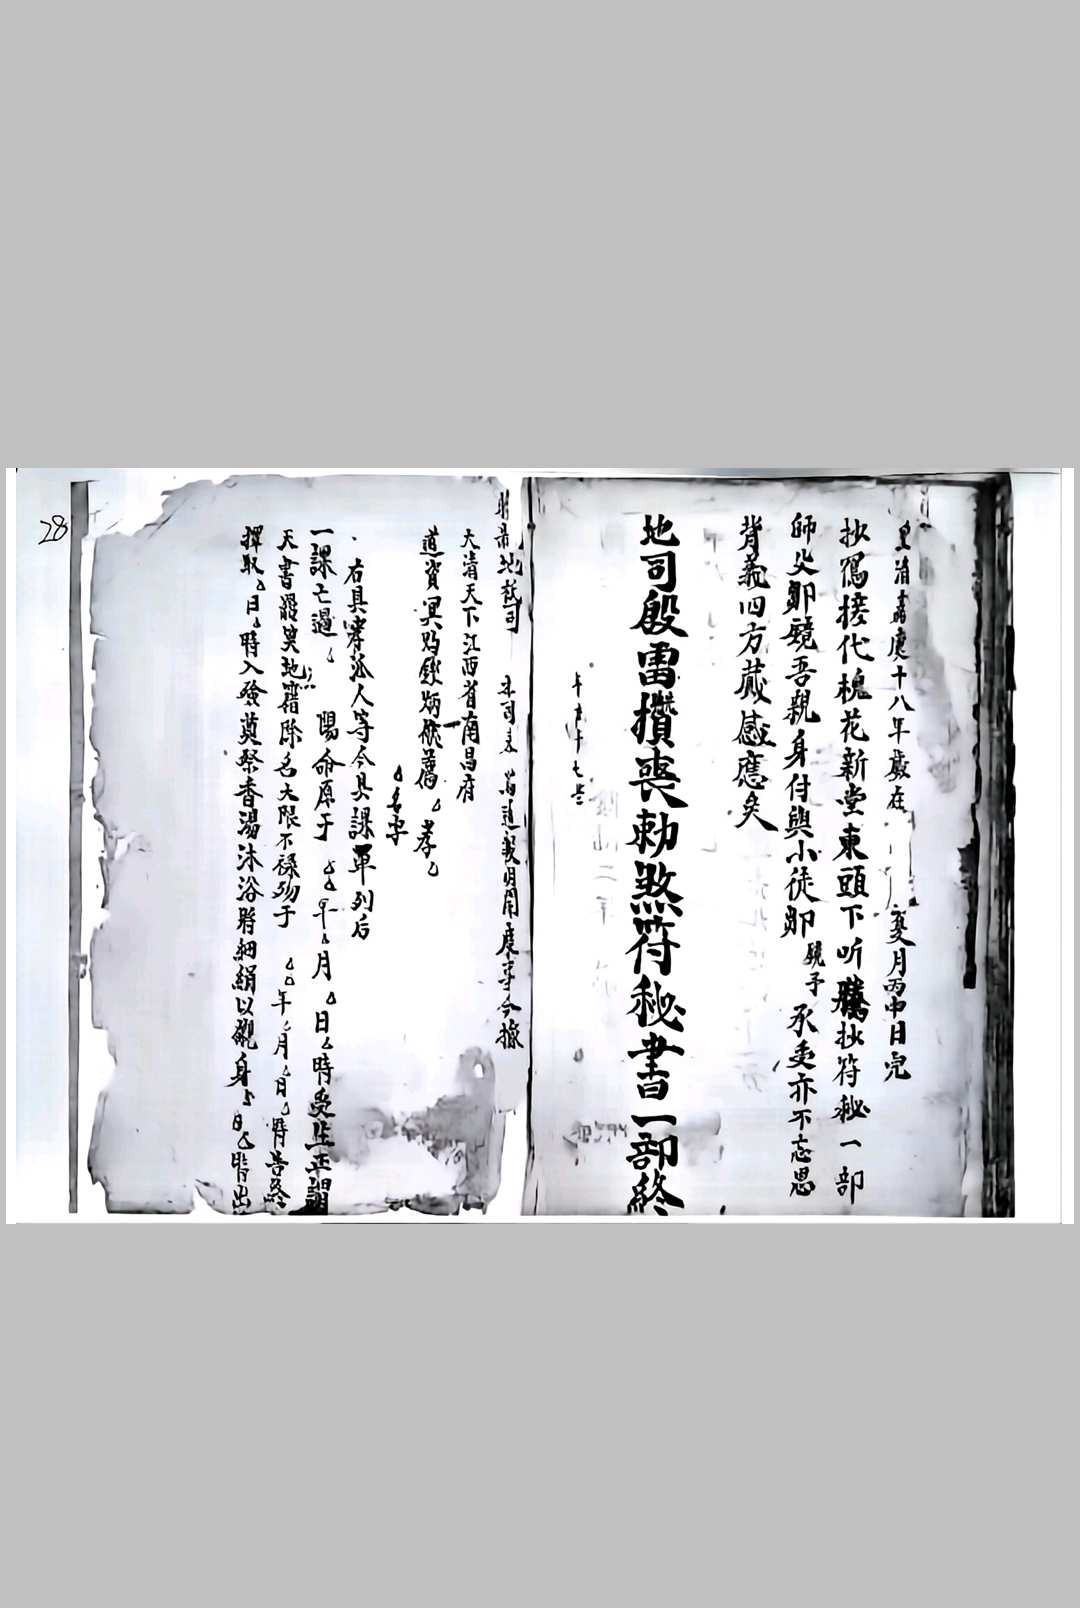 皇清嘉慶十八年歲在 變月丙申日完
抄寫接代槐花新堂東頭下听騰抄符秘一部
師父鄒鏡吾親身付與小徒鄒鏡予承受亦不忘恩
背義四方藏感應矣
地司殷雷攢喪勅煞符秘書一部終
年方十七岁
地 司 本司 為追 度事今據
大清天下江西省南昌府
道資冥 孝
名字
右具孝孤人等今具課單列后
一課亡過 陽命原于 年 月 日 時受生正謂
天書 地籍除名大限不祿殁于 年 月 日 時善終
擇取 日 時入殮奠祭香湯沐浴將細絹以襯身 日 時出
28